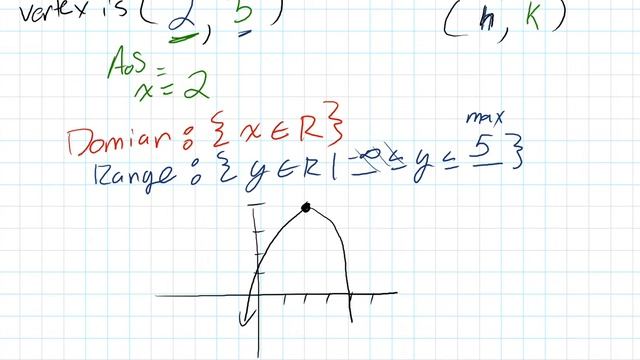 vertex is (2, 5)
(h, k)
AoS =
x = 2
Domian : { x ∈ R }
max
Range : { y ∈ R | -∞ ≤ y ≤ 5 }